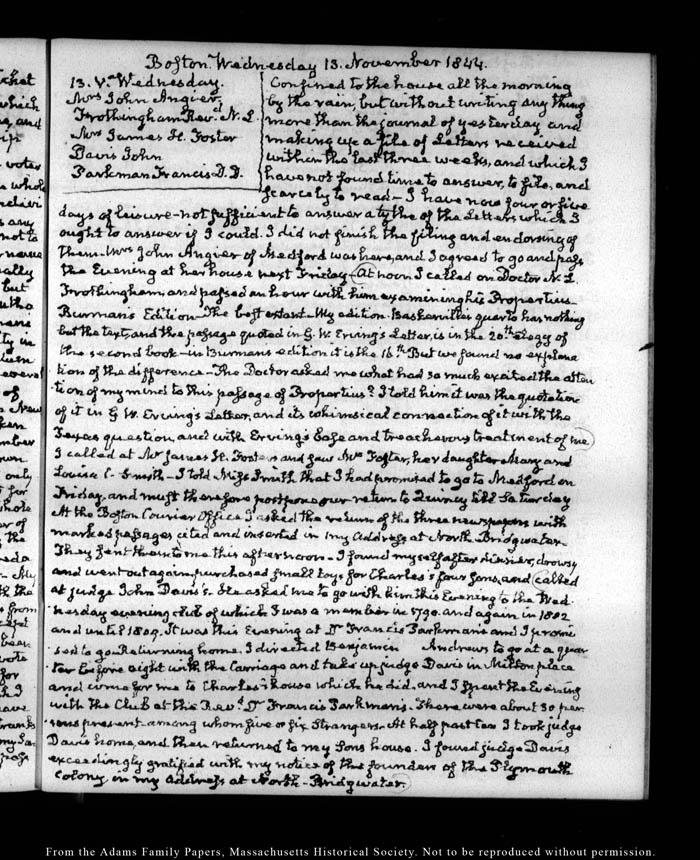 Boston. Wednesday 13. November 1844.
13. V. Wednesday.
Mrs John Angier.
Frothingham Revd. N. L.
Mrs James H. Foster
Davis John
Parkman Francis D.D.
Confined to the house all the morning
by the rain, but without writing any thing
more than the journal of yesterday and
making up a file of Letters received
within the last three weeks, and which I
have not found time to answer, to file, and
scarcely to read - I have now four or five
days of leisure - not sufficient to answer a tythe of the Letters which I
ought to answer if I could. I did not finish the filing and endorsing of
them. Mrs John Angier of Medford was here, and I agreed to go and pass
the Evening at her house next Friday. At noon I called on Doctor N. L.
Frothingham, and passed an hour with him examining his Propertius
Burman's Edition - The best extant - My edition Baskerville quarto has nothing
but the text, and the passage quoted in G. W. Erving's Letter, is in the 20th Elegy of
the second book - in Burmans edition it is the 16th But we found no explana
tion of the difference - The Doctor asked me what had so much excited the atten
tion of my mind to this passage of Propertius? I told him it was the quotation
of it in G W. Erving's Letter, and its whimsical connection of it with the
Texas question, and with Erving's base and treacherous treatment of me
I called at Mr James H. Fosters and saw Mrs Foster, her daughter Mary and
Louisa C. Smith - I told Miss Smith that I had promised to go to Medford on
Friday, and must therefore postpone our return to Quincy till Saturday
At the Boston Courier Office I asked the return of the three newspapers with
marked passages cited and inserted in my Address at North Bridgwater.
They sent them to me this afternoon - I found myself after dinner, drowsy
and went out again, purchased small toys for Charles's four sons, and called
at judge John Davis's. He asked me to go with him this Evening to the Wed
nesday evening club of which I was a member in 1790. and again in 1802
and until 1809. It was this Evening at Dr Francis Parkmans and I promi
sed to go. Returning home, I directed Benjamin Andrews to go at a quar
ter before eight with the Carriage and take up judge Davis in Milton place
and come for me to Charles's house which he did, and I spent the Evening
with the Club at the Revd. Dr Francis Parkman's. There were about 30 per
sons present among whom five or six Strangers. At half past ten I took judge
Davis home, and then returned to my Sons house. I found judge Davis
exceedingly gratified with my notice of the founders of the Plymouth
Colony, in my Address at North-Bridgwater.
From the Adams Family Papers, Massachusetts Historical Society. Not to be reproduced without permission.